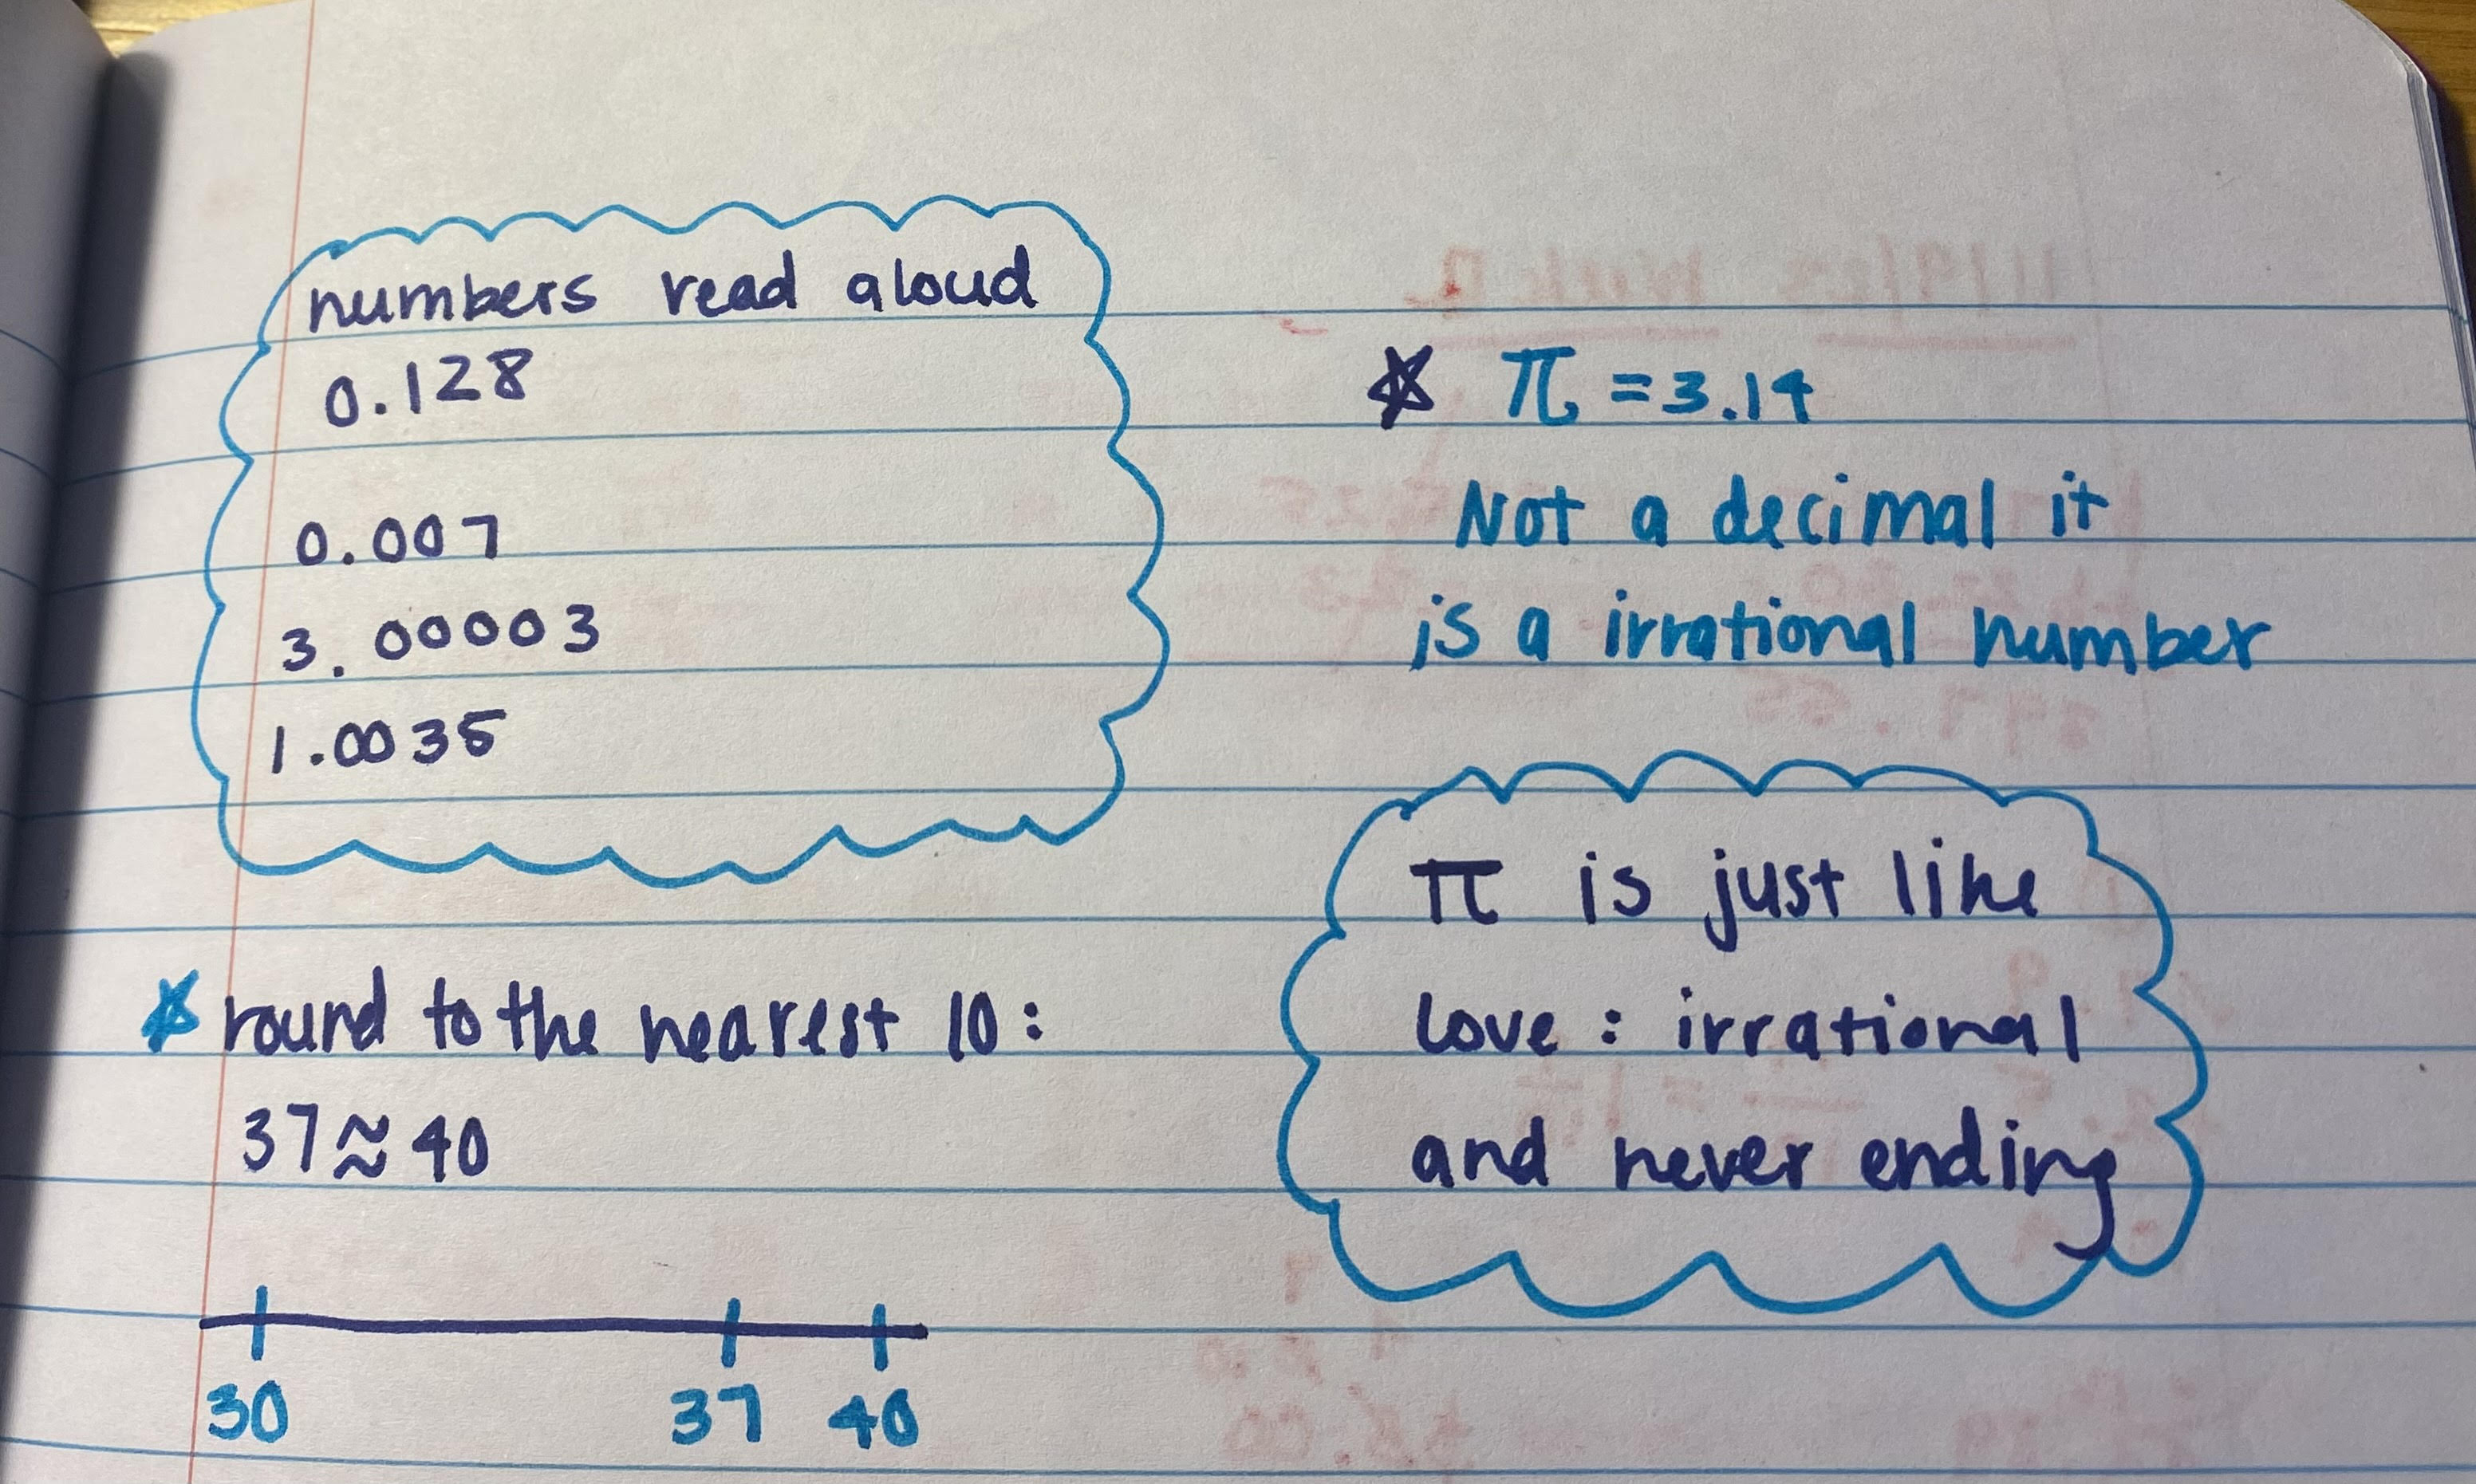 numbers read aloud
0.128
0.007
3.00003
1.0035
π = 3.14
Not a decimal it
is a irrational number
π is just like
love : irrational
and never ending
round to the nearest 10 :
37 ≈ 40
30 37 40